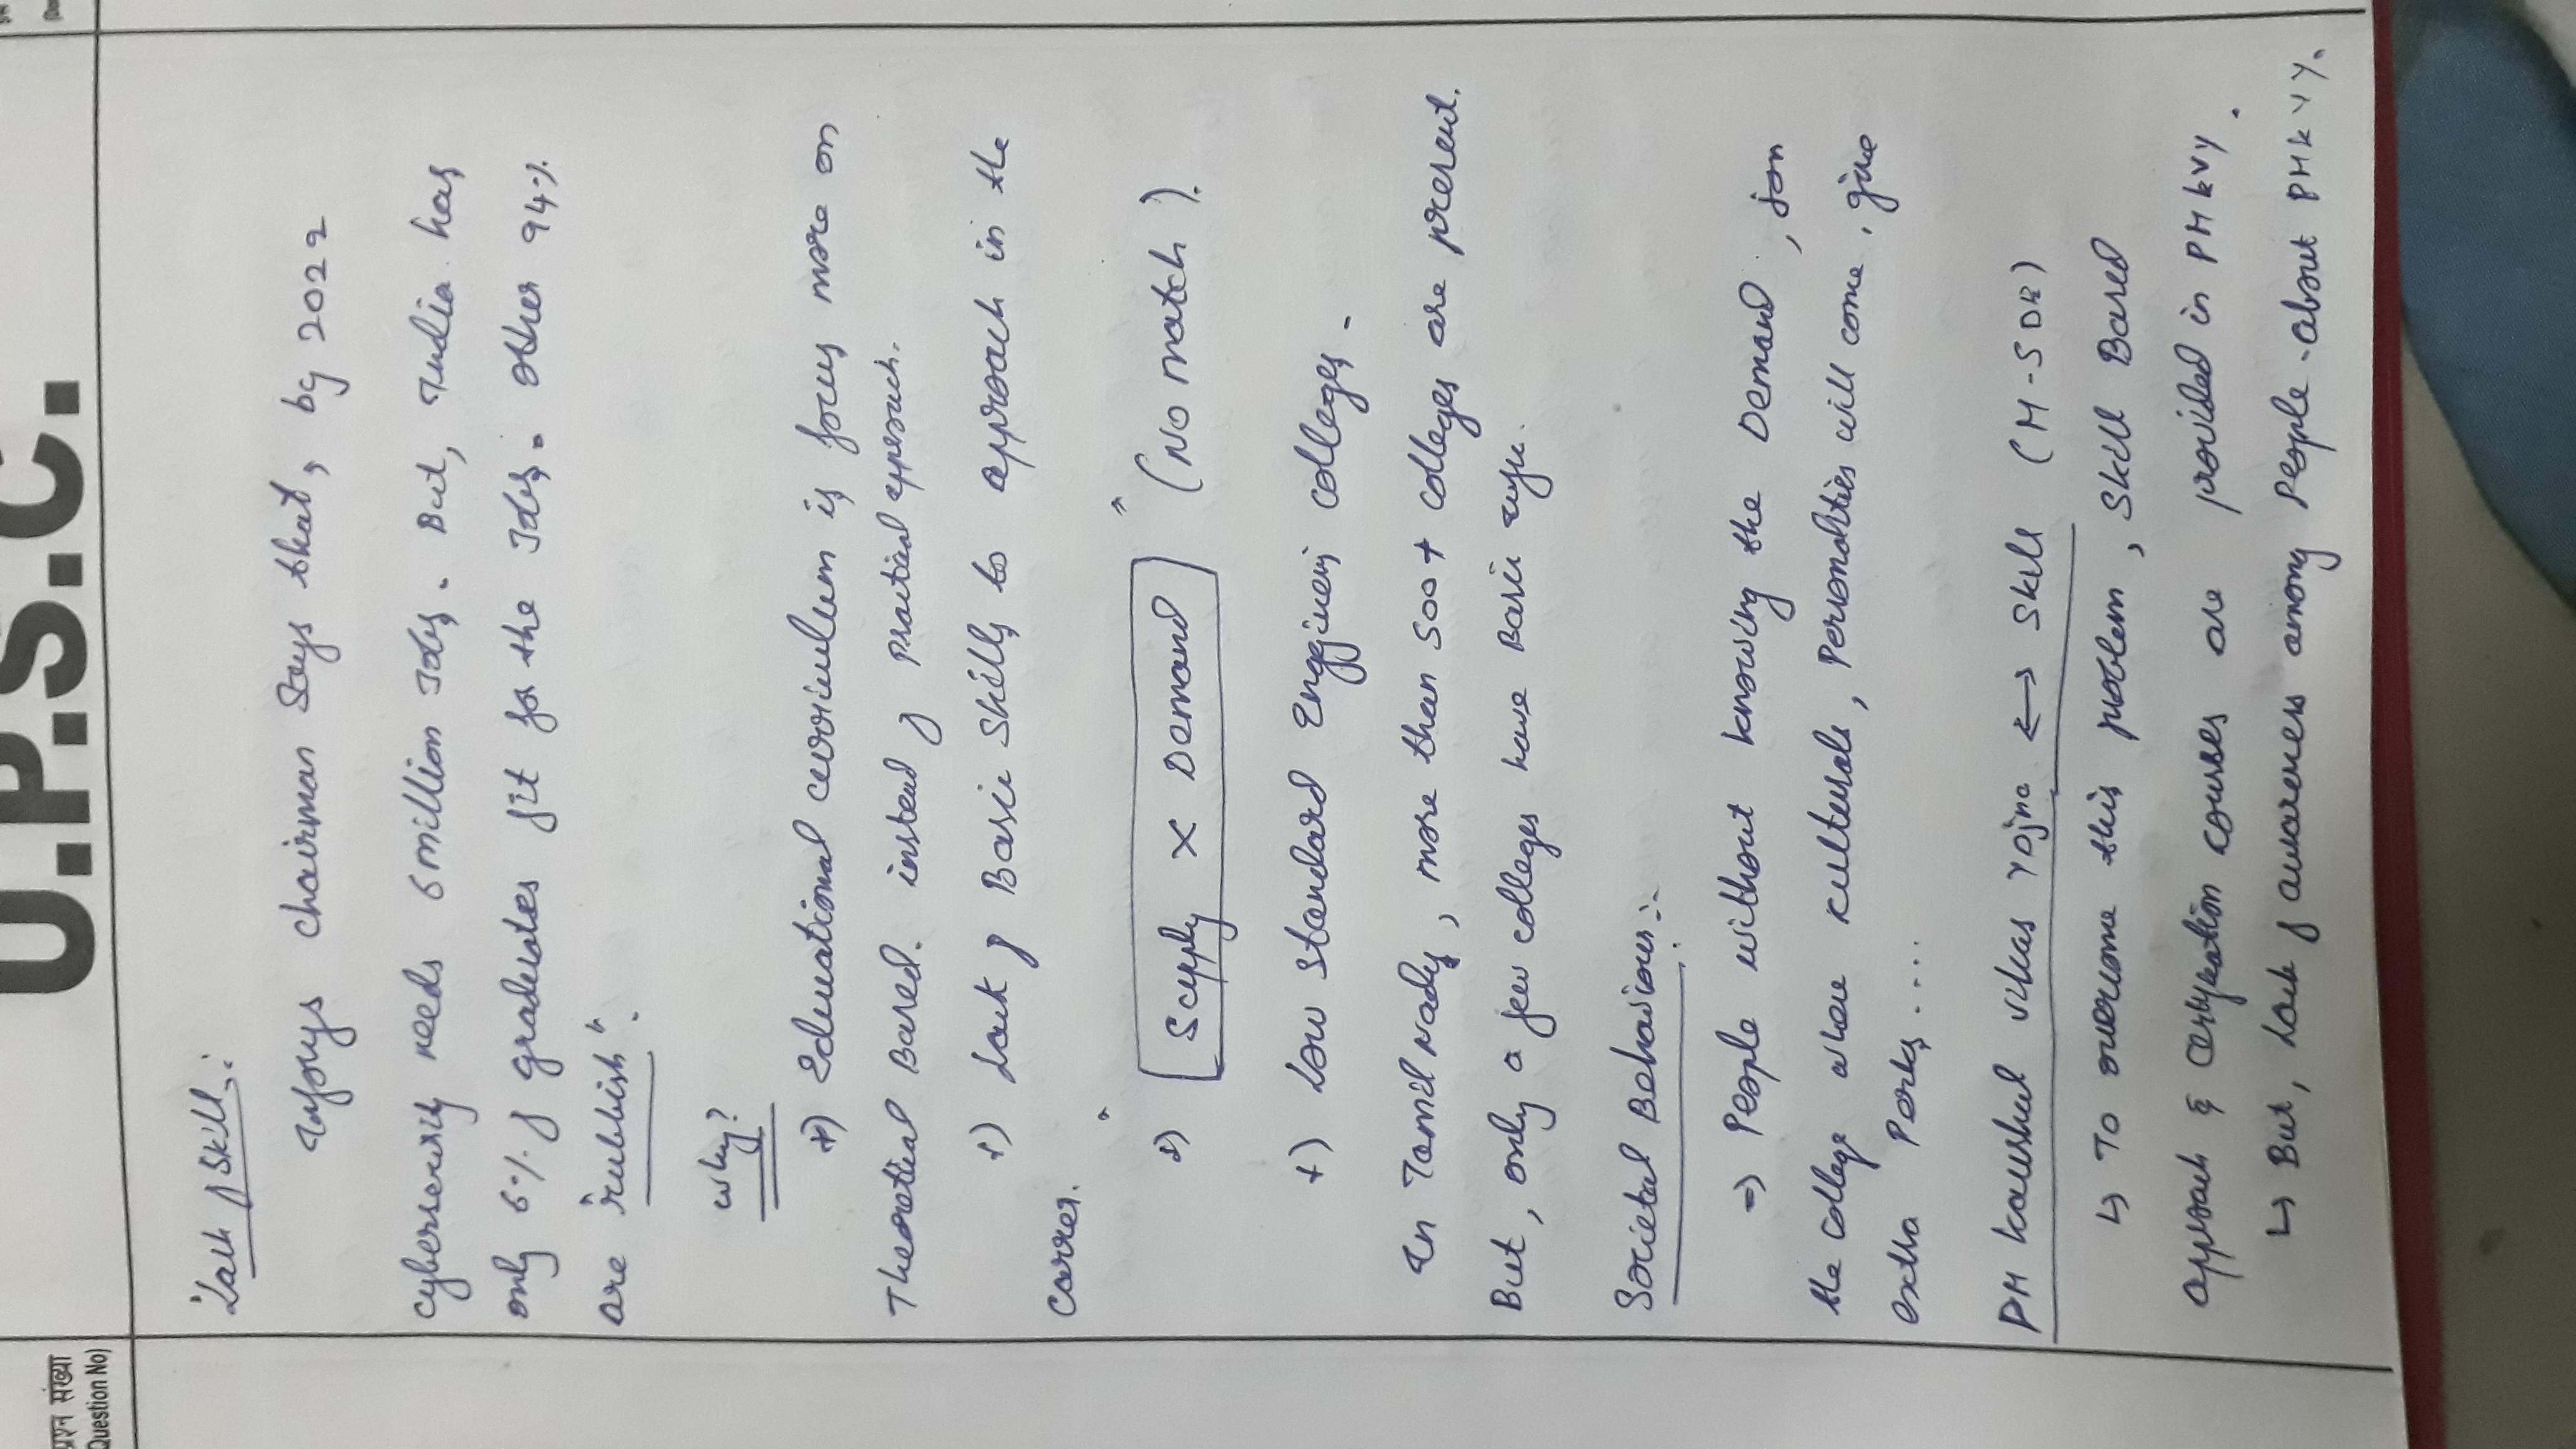 U.P.S.C.
प्रश्न संख्या
Question No)
"Lack of Skill":
Infosys chairman Says that, by 2022
cybersecurity needs 6 million Jobs. But, India has
only 6% of graduates fit for the Jobs. other 94%
are "rubbish".
why?
+) Educational curriculum is focus more on
Theoretical Based. instead of Practical approach.
+) Lack of Basic Skills to approach in the
Carrer.
+) "Supply × Demand" (No match).
+) Low Standard Enggineerig colleges.
In Tamil Nadu, more than 500+ colleges are present.
But, only a few colleges have Basic
Societal Behaviour:-
⇒ People without knowing the Demand, join
the college where culturals, Personalities will come, give
extra Perks....
PM Kaushal vikas Yojna ↔ Skill (M-SDE)
↳ To overcome this problem, Skill Based
approach & Certification courses are provided in PMKVY.
↳ But, Lack of awareness among People about PMKVY.